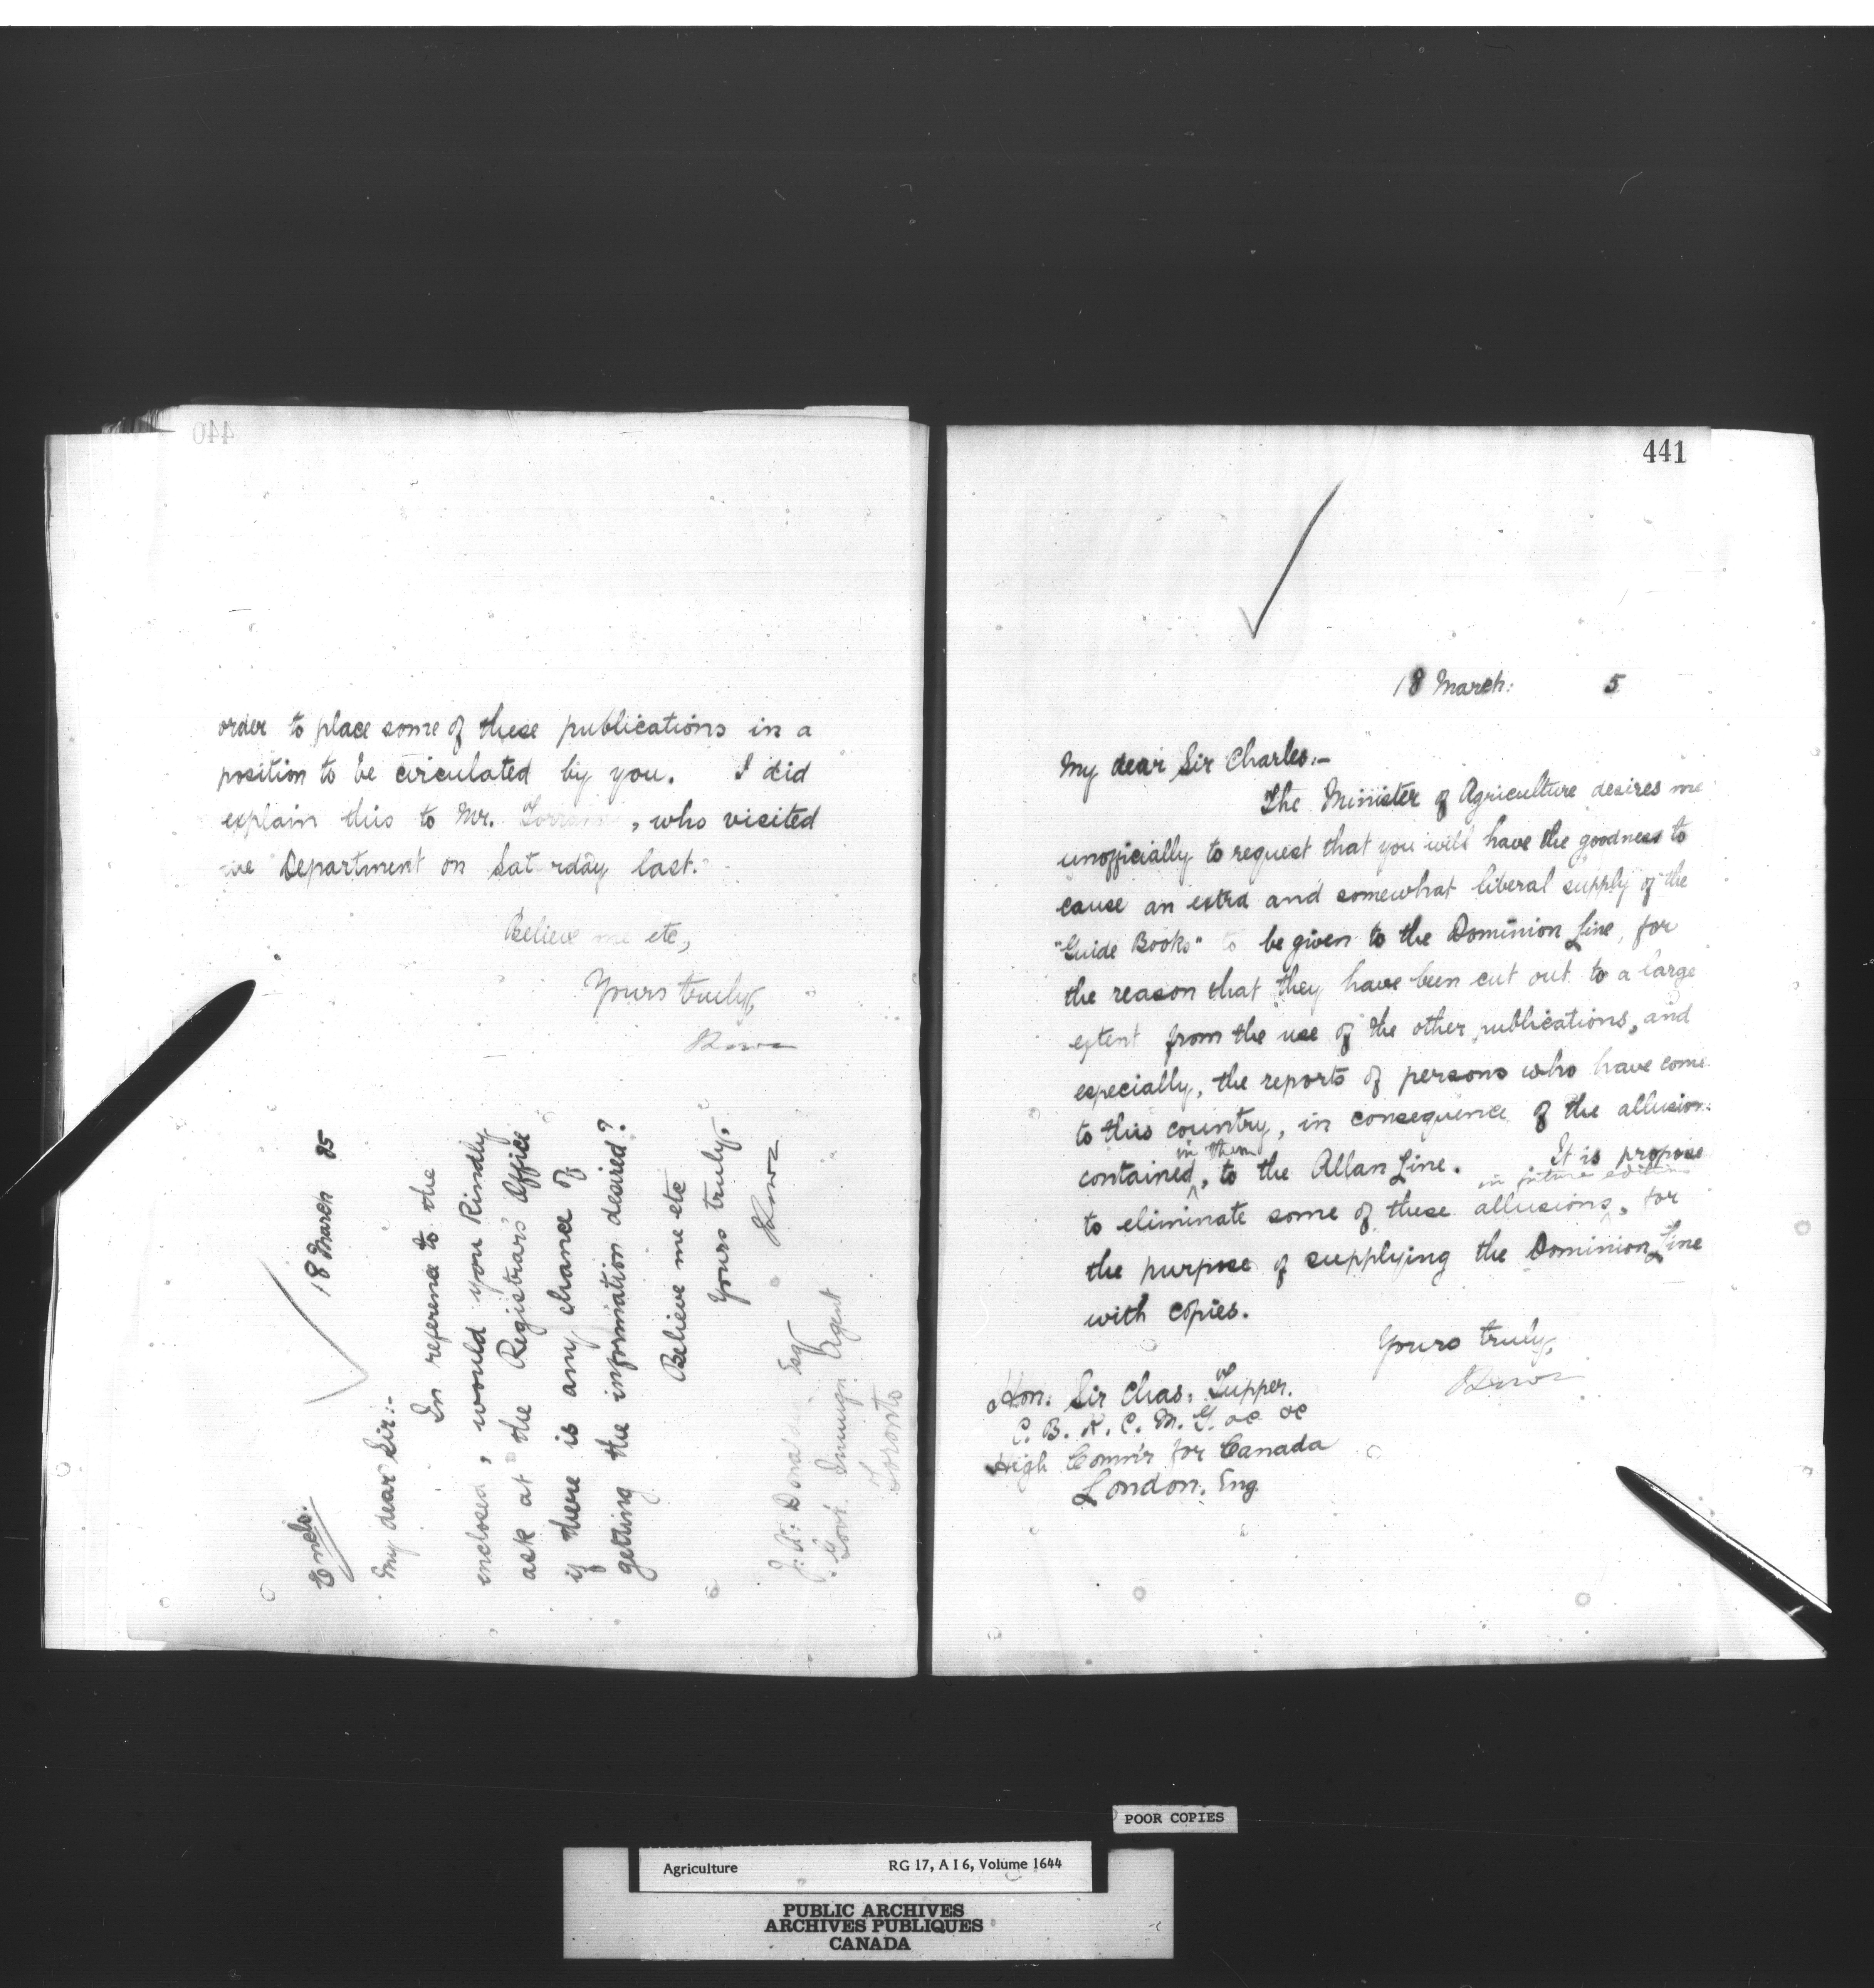 440
order to place some of these publications in a
position to be circulated by you. I did
explain this to Mr. , who visited
Department on Saturday last.
Believe me etc,
Yours truly,
Encls.
18 March 85
My dear Sir:-
In reference to the
enclosed, would you kindly
ask at the Registrars' Office
if there is any chance of
getting the information desired?
Believe me etc
Yours truly,
J. A. Donaldson Esq
Govt. Immign. Agent
Toronto
441
18 March: 5
My dear Sir Charles:-
The Minister of Agriculture desires me
unofficially to request that you will have the goodness to
cause an extra and somewhat liberal supply of the
"Guide Books" to be given to the Dominion Line, for
the reason that they have been cut out to a large
extent from the use of the other publications, and
especially, the reports of persons who have come
to this country, in consequence of the allusions
contained in them, to the Allan Line. It is propose
to eliminate some of these allusions, in future editions for
the purpose of supplying the Dominion Line
with copies.
Yours truly,
Hon: Sir Chas: Tupper.
C. B. K. C. M. G. &c &c
High Commr for Canada
London. Eng.
POOR COPIES
Agriculture RG 17, A I 6, Volume 1644
PUBLIC ARCHIVES
ARCHIVES PUBLIQUES
CANADA